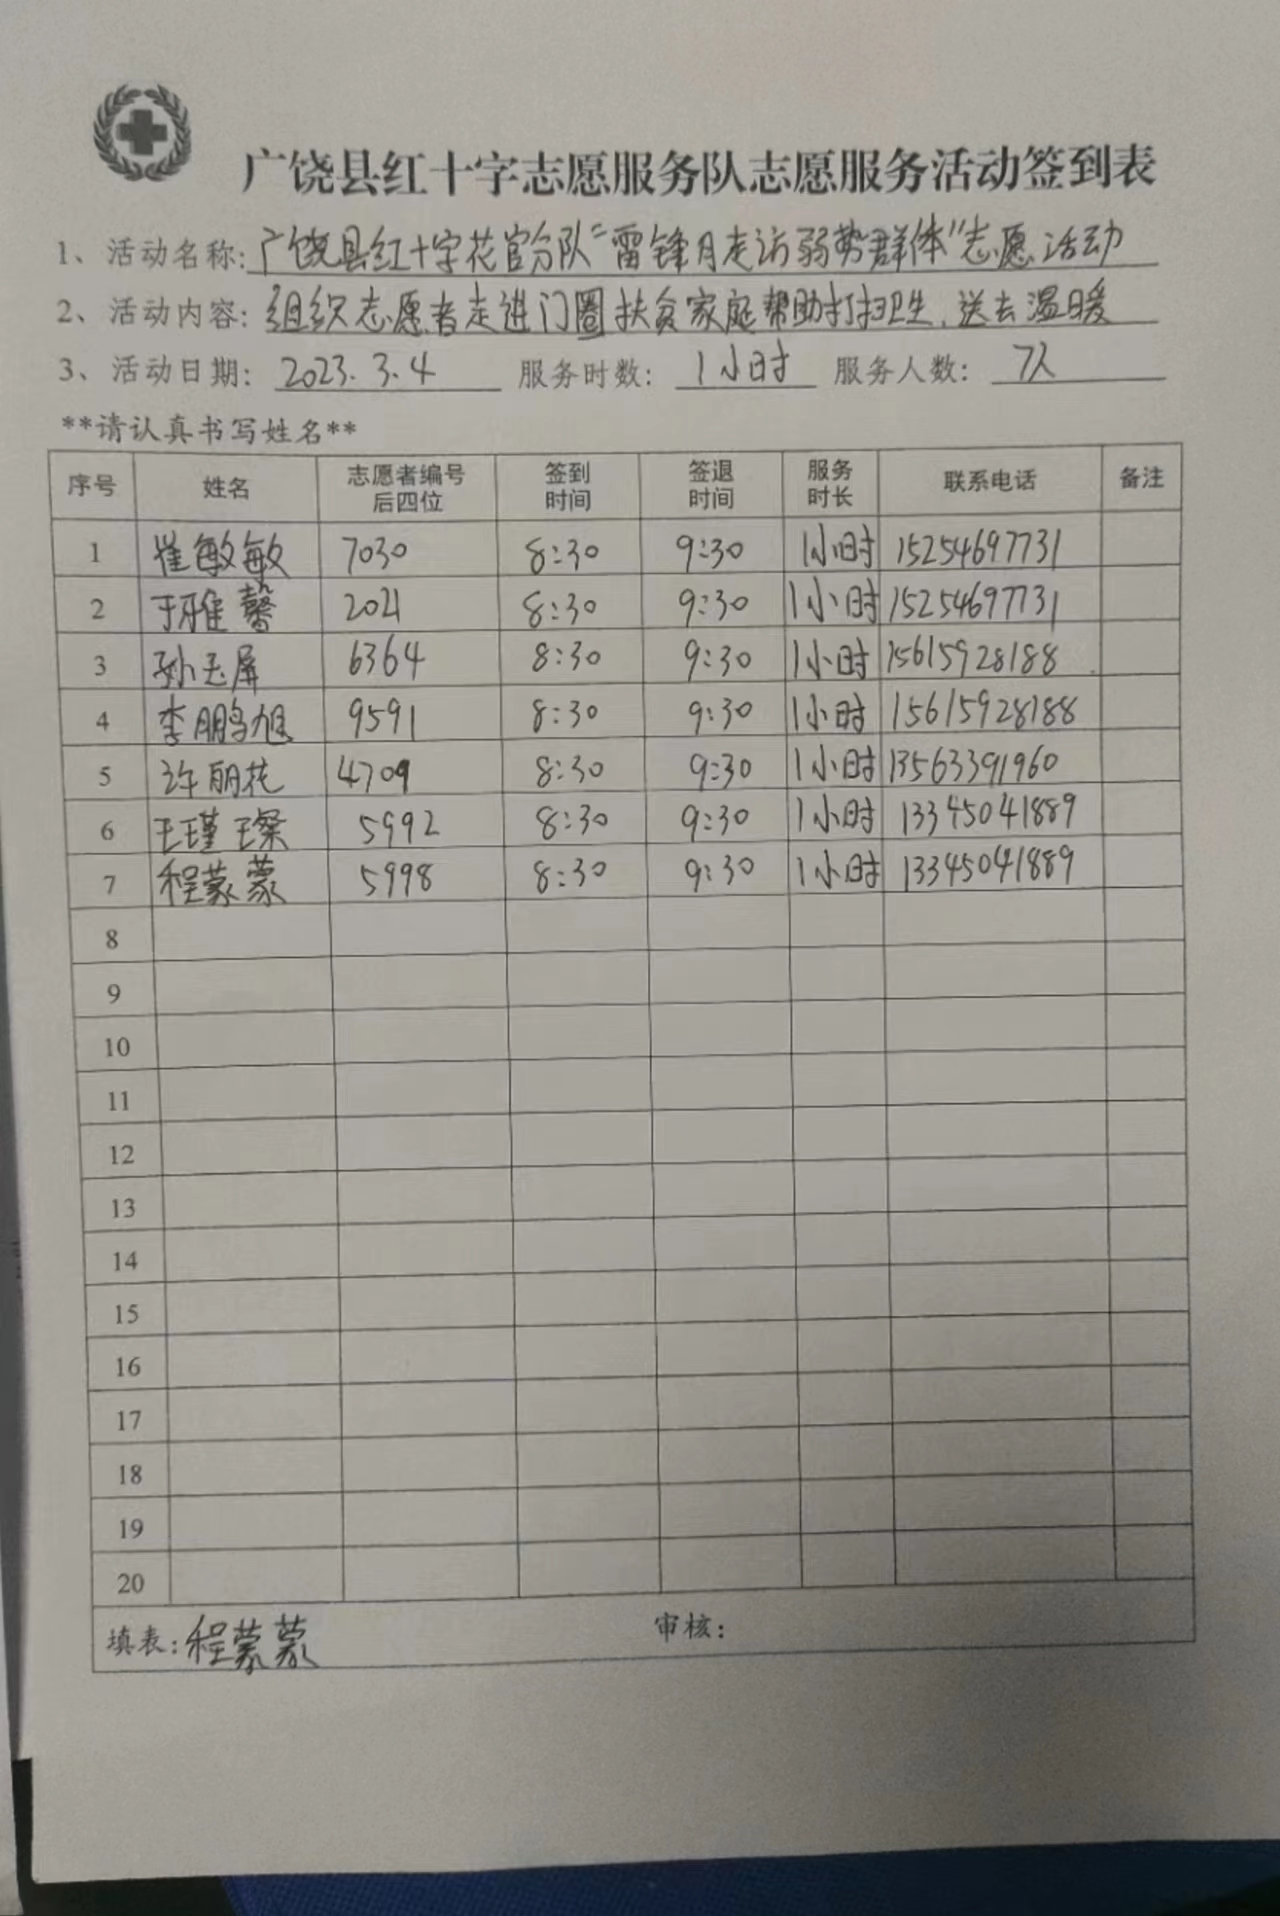 广饶县红十字志愿服务队志愿服务活动签到表
1、活动名称:广饶县红十字花官分队“雷锋月走访弱势群体”志愿活动
2、活动内容:组织志愿者走进门圈扶贫家庭帮助打扫卫生,送去温暖
3、活动日期:2023.3.4 服务时数:1小时 服务人数:7人
**请认真书写姓名**
序号 姓名 志愿者编号后四位 签到时间 签退时间 服务时长 联系电话 备注
1 崔敏敏 7030 8:30 9:30 1小时 15254697731
2 于雅馨 2021 8:30 9:30 1小时 15254697731
3 孙玉屏 6364 8:30 9:30 1小时 15615928188
4 李鹏旭 9591 8:30 9:30 1小时 15615928188
5 许丽花 4709 8:30 9:30 1小时 13563391960
6 王瑾璨 5992 8:30 9:30 1小时 13345041889
7 程蒙蒙 5998 8:30 9:30 1小时 13345041889
8
9
10
11
12
13
14
15
16
17
18
19
20
填表:程蒙蒙 审核: